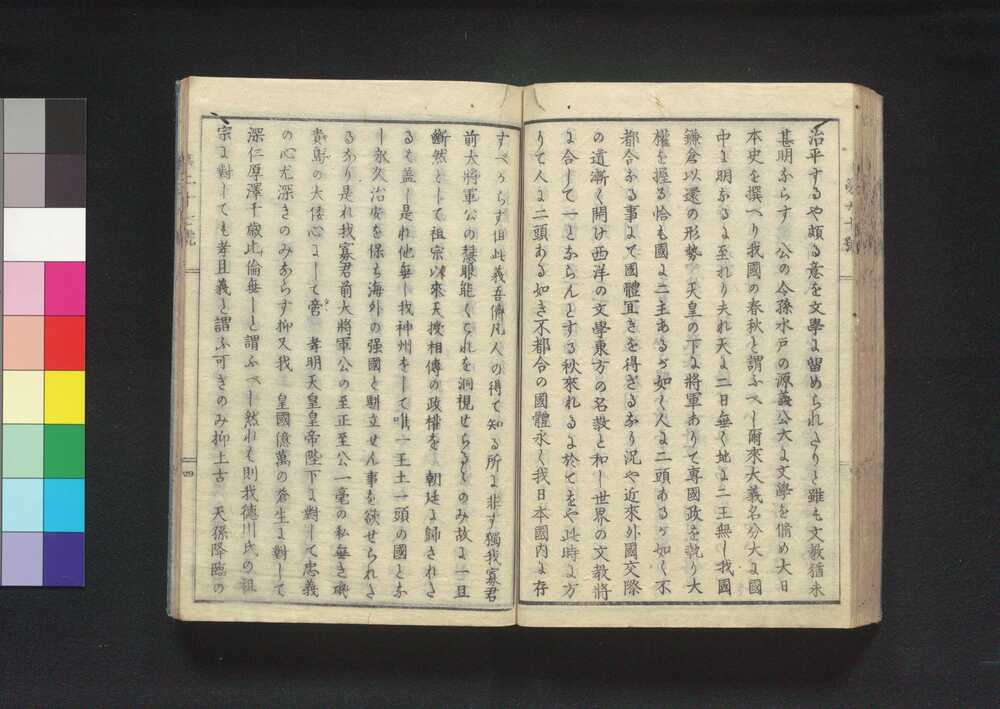 治平するや頗る意を文學に留められたりと雖も文教猶未
甚明ならす 公の令孫水戸の源義公大に文學を脩め大日
本史を撰へり我國の春秋と謂ふへし爾來大義名分大に國
中に明なるに至れり夫れ天に二日無く地に二王無し我國
鎌倉以還の形勢 天皇の下に將軍ありて專國政を執り大
權を握る恰も國に二主あるか如く人に二頭あるか如く不
都合なる事にて國體宜きを得ざるなり況や近來外國交際
の道漸く開け西洋の文學東方の名教と和し世界の文教將
に合して一とならんとする秋來れるに於てをや此時に方
りて人に二頭ある如き不都合の國體永く我日本國内に存
すべからず但此義吾儕凡人の得て知る所に非ず獨我寡君
前大將軍公の慧眼能くこれを洞視せらるゝのみ故に一旦
斷然として祖宗以來天授相傳の政權を 朝廷に歸された
るも蓋し是れ他無し我神州をして唯一王土一頭の國とな
し永久治安を保ち海外の强國と駢立せん事を欲せられた
るなり是れ我寡君前大將軍公の至正至公一毫の私無き
貴重の大倭心にして啻 孝明天皇皇帝陛下に對して忠義
の心尤深きのみならす抑又我 皇國億萬の蒼生に對して
深仁厚澤千歳比倫無しと謂ふへし然れも則我德川氏の祖
宗に對しても孝且義と謂ふ可きのみ抑上古 天孫降臨の
四